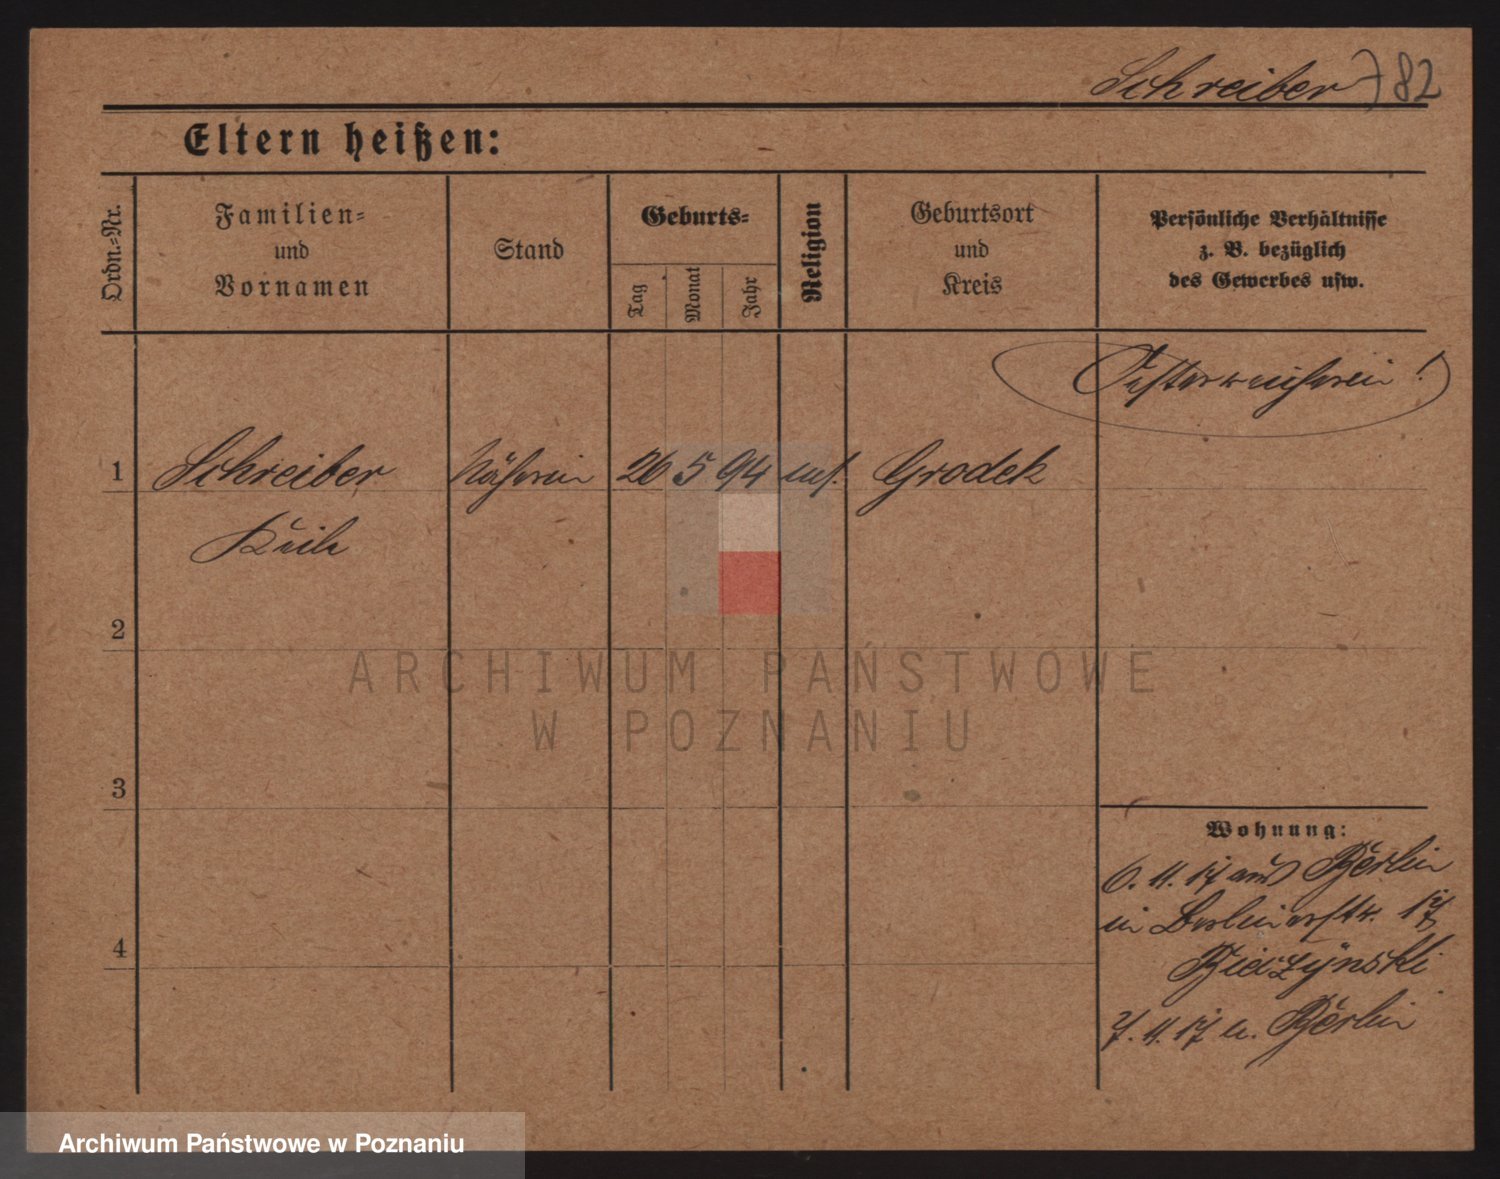 Schreiber 782
Eltern heißen:
Ordn.-Nr.
Familien-
und
Vornamen
Stand
Geburts-
Tag
Monat
Jahr
Religion
Geburtsort
und
Kreis
Persönliche Verhältnisse
z. B. bezüglich
des Gewerbes usw.
Oesterreicherin!
1 Schreiber Näherin 26 5 94 Grodek
2
3
4
ARCHIWUM PAŃSTWOWE
W POZNANIU
Wohnung:
6. 11. 17 aus Berlin
in Berlinerstr. 17
Bieczynski
7. 11. 17 n. Berlin
Archiwum Państwowe w Poznaniu